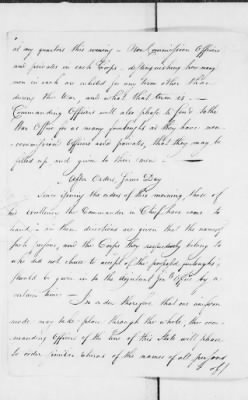 at my quarters this evening – Non Commission Officers
and privates in each Corps, distinguishing how many
men in each are inlisted for any term other than
during the War, and what that term is –
Commanding Officers will also please to send to the
War Office for as many furloughs as they have non
commissioned officers and privates, that they may be
filled up and given to their men –
After Orders, same Day
Since issuing the orders of this morning, those of
his excellency the Commander in Chief have come to
hand; in them directions are given that the names of
such persons, and the Corps they respectively belong to
who did not chuse to accept of the proposed furloughs,
should be given in to the Adjutant Genls Office by a
certain time – In order therefore, that one uniform
mode may take place through the whole, the com-
manding Officers of the line of this State will please
to order similar returns of the names of all persons
of